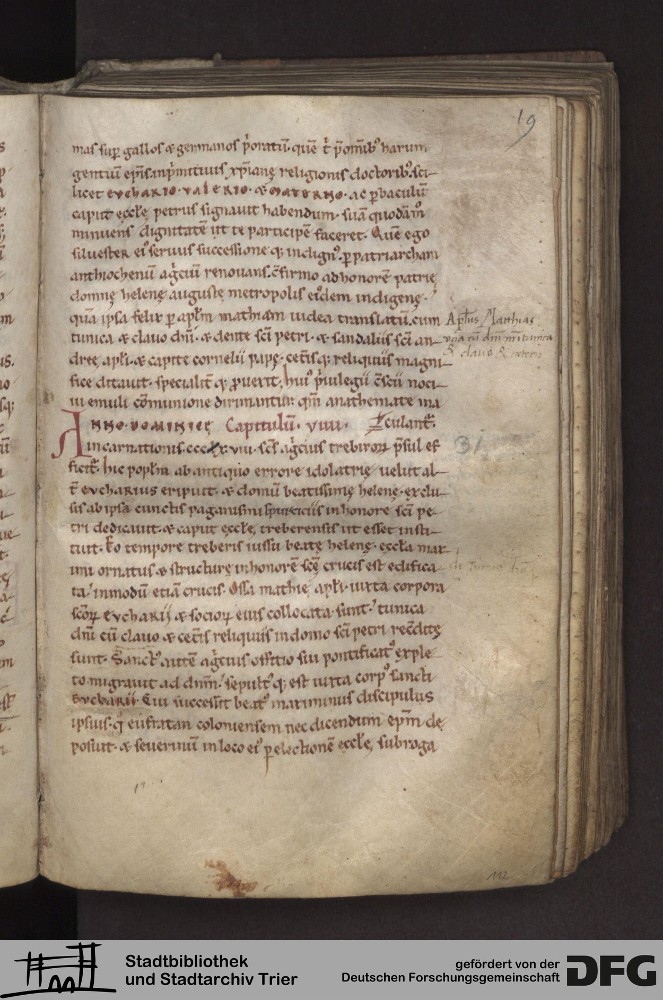 19
mas sup̄ gallos & germanos p̄oratū. quē t̄ p̄omīb; harum
gentiū ep̄is inp̄mitiuis xp̄ianę religionis doctorib; sci
licet euchario. valerio. & materno. ac p̄ baculū
caput ęccłę petrus signauit habendum. suā
minuens dignitatē ut te participē faceret. Quē ego
siluester ei; seruus successione q; indign;. p̄ patriarcham
anthiochenū agˈciū renouans. c̄firmo ad honorē patrię
domnę helenę augustę metropolis ei;dem indigenę.
quā ipsa felix p̄ apłm mathiam iudea translatū. cum
tunica & clauo dn̄i. & dente sc̄i petri. & sandaliis sc̄i an
dreę apłi. & capite cornelii papę. cet̄isq; reliquiis magni
fice ditauit. specialit̄ q; huı; p̄iulegii noci
ui emuli cōmunione dirimantur. qm̄ anathemate ma
Apłus Matthias
cū dn̄i tunica
& clauo
ANNO. DOMINICĘ Capitulū. viiii. culant̄.
incarnationis. cccxxviii. sc̄s agˈcius trebiroꝝ p̄sul ef
ficit̄. hic popłm ab antiquo errore idolatrię velut al
t̄ eucharius eripuit. & domū beatissimę helenę. exclu
sis ab ipsa cunctis paganismi spurciciis in honore sc̄i pe
tri dedicauit. & caput ęccłę, treberensis ut esset insti
tuit. Eo tempore treberis iussu beatę helenę. ęccła mar
mi ornatus & structurę in honorē sc̄ę crucis est edifica
ta. in modū etiā crucis. Ossa mathię apłi. iuxta corpora
sc̄oꝝ eucharii & socioꝝ eius collocata sunt. tunica
dn̄i cū clauo & cet̄is reliquiis in domo sc̄i petri recōditę
sunt. Sanct; autē agˈcius offitio sui pontificat; exple
to migrauit ad dn̄m. sepult; q; est iuxta corp; sancti
Eucharii. Cui successit beat; maximinus discipulus
ipsius. q̄ eufratan coloniensem nec dicendum ep̄m de
posuit. & seuerinū in loco ei; p̄ electionē ęccłę, subroga
112
Stadtbibliothek
und Stadtarchiv Trier
gefördert von der
Deutschen Forschungsgemeinschaft
DFG